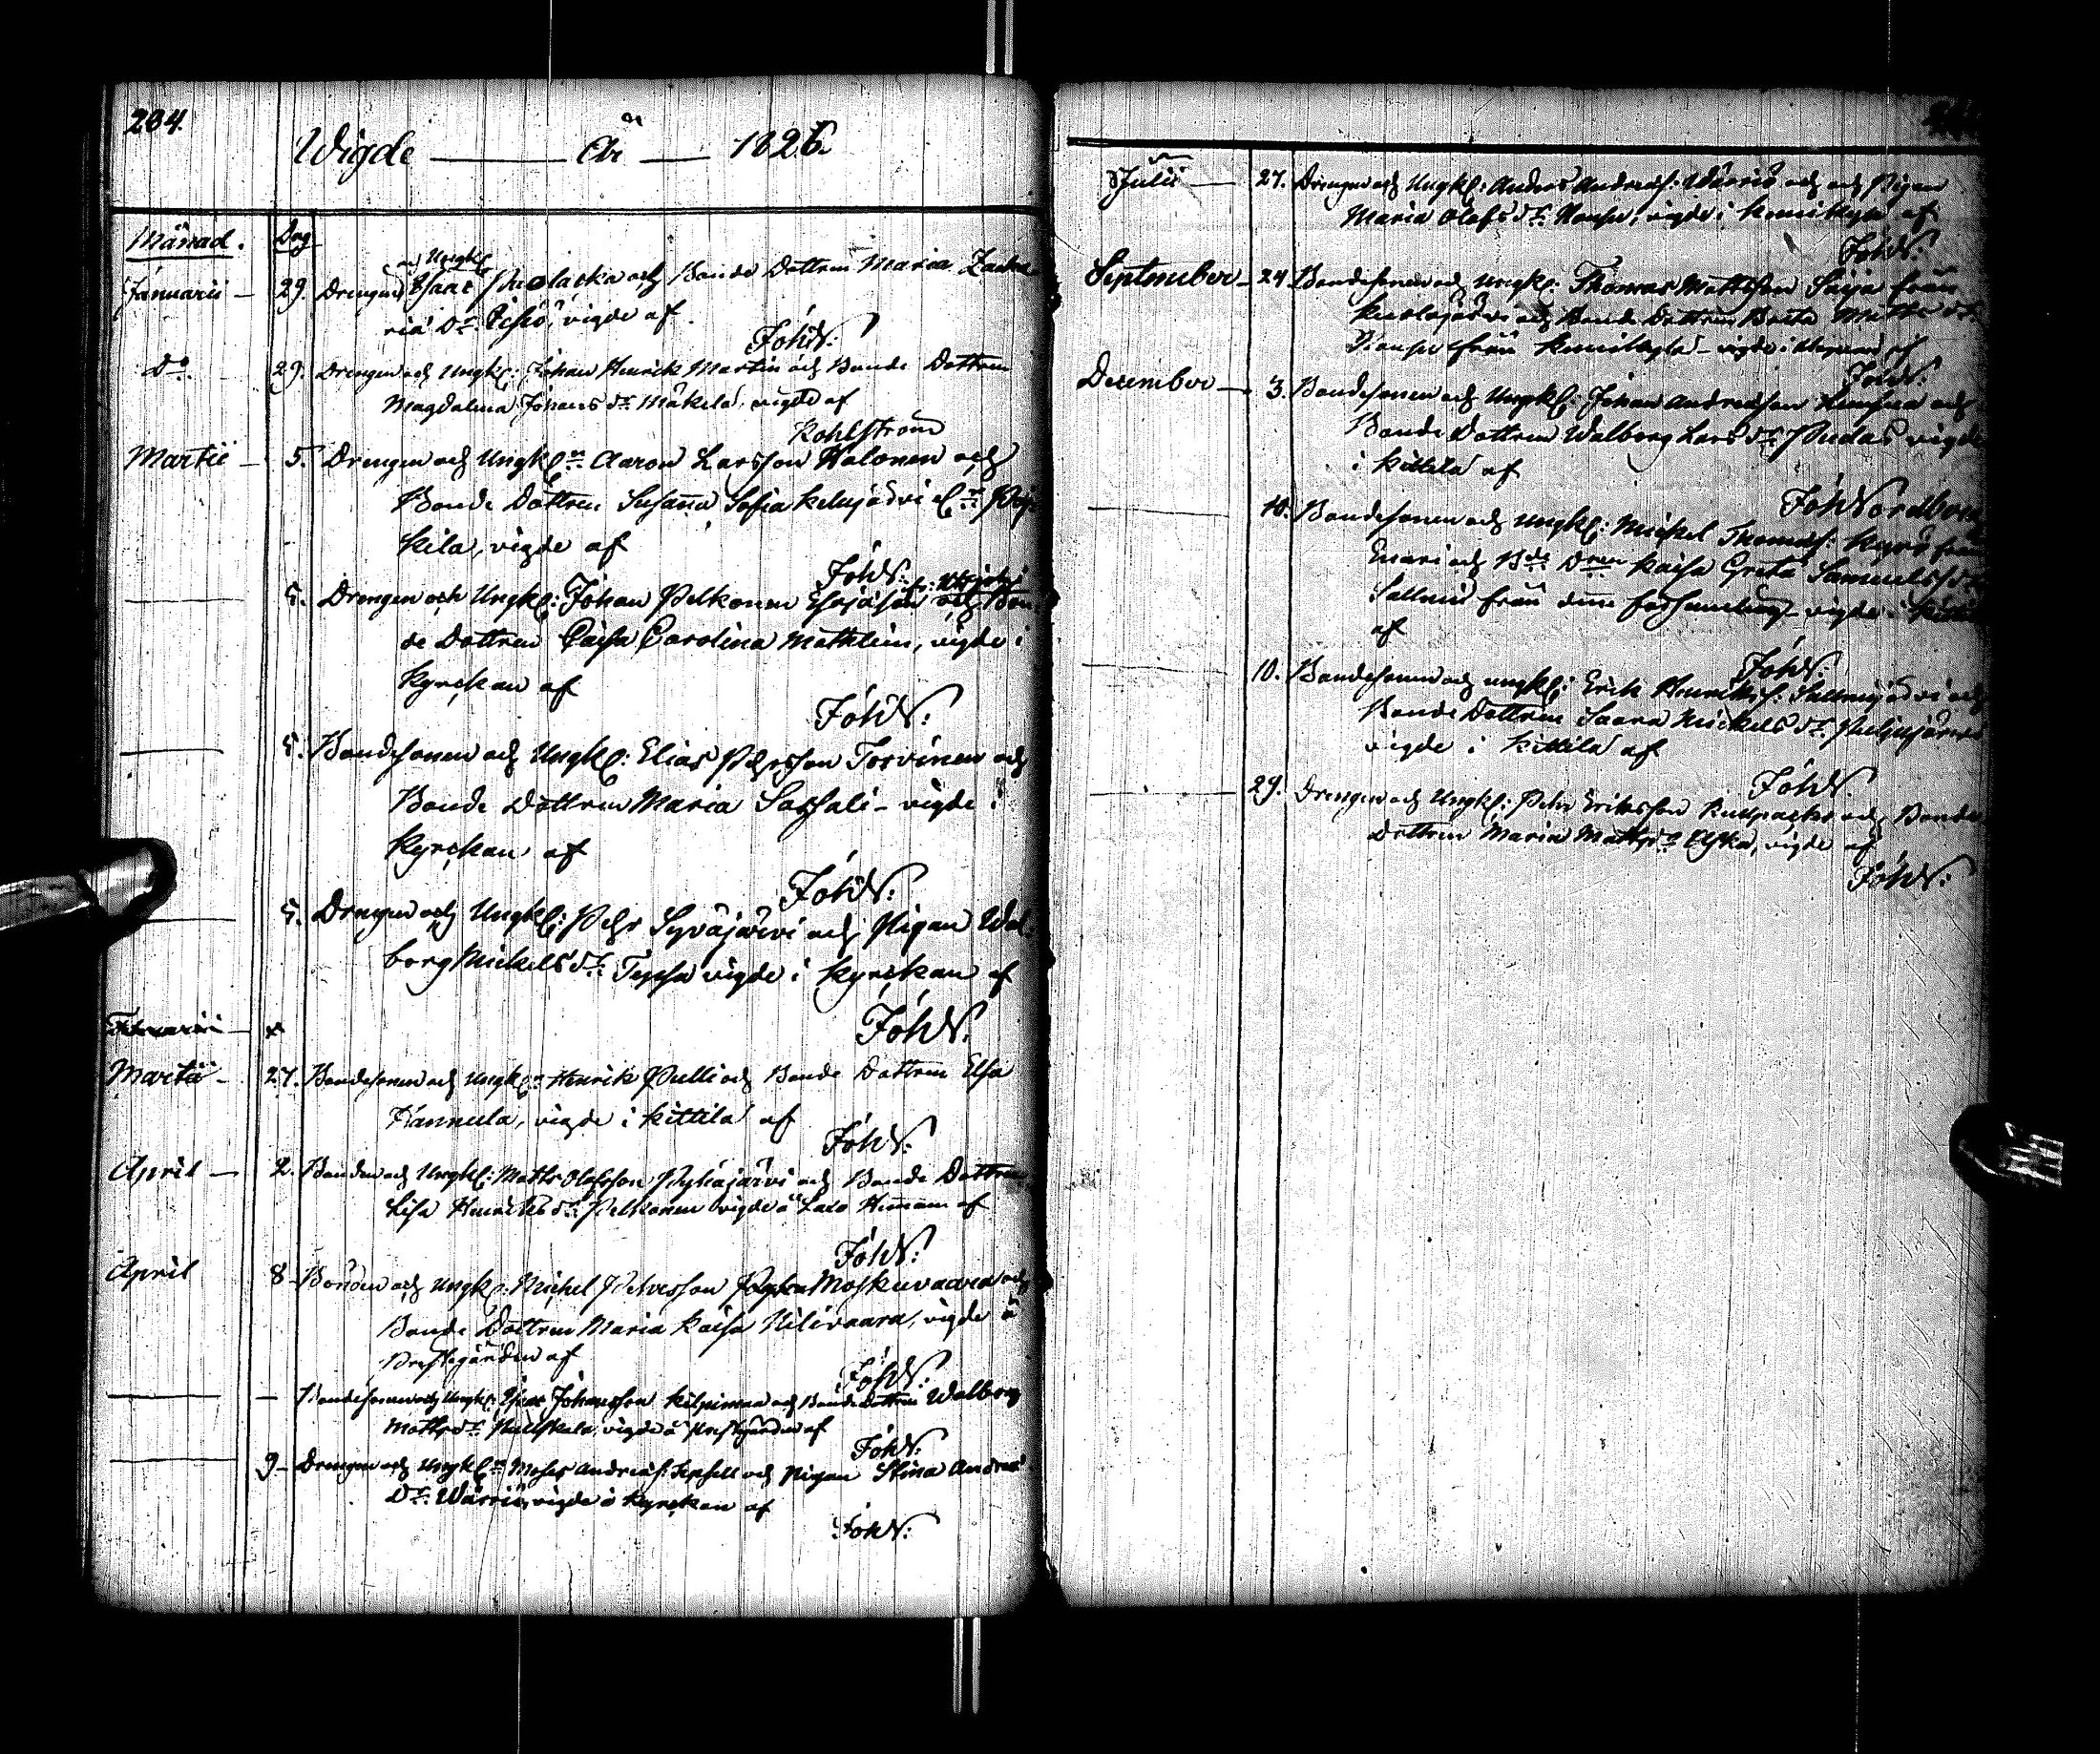 204.
Wigde — År — 1826.
Månad. Dag
och Ungkl
Januarii — 29. Drengen Isaac och Bonde Dottren Maria Zacha-
ria Dr. vigde af
JohN:
Do. 29. Drengen och Ungkl: Johan Henrik Martin och Bonde Dottren
Magdalena Johans dr. Mäkelä, vigde af
Kohlström
Martii — 5. Drengen och Ungkln Aaron Larsson Halonen och
Bonde Dottren Susanna Sofia Kelujärvi
kila, vigde af
JohN:
5. Drengen och Ungkl: Johan Pelkonen Esajasson och Bon-
de Dottren Caisa Carolina Mathlein, vigde i
Kyrckan af
JohN:
5. Bondesonen och Ungkl: Elias Pehrsson Torvinen och
Bonde Dottren Maria Sassali - vigde i
Kyrckan af
JohN:
5. Drengen och Ungkl: Pehr Syväjärvi och Pigan Wal-
borg Mickels dr. Teppa vigde i Kyrckan af
JohN:
Februarii
Martii — 27. Bondesonen och Ungkln Henrik Pulli och Bonde Dottren Elsa
Hannula, vigde i Kittilä af
JohN:
April — 2. Bonden och Ungkl: Matts Olofsson Pyhäjärvi och Bonde Dottren
Lisa Henriks dr. Pelkonen vigde å af
JohN:
April 8 Bonden och Ungkl: Michel Petersson Moskuvaara och
Bonde Dottren Maria Kaisa Nilivaara, vigde å
Prestegården af
JohN:
— Bondesonen och Ungkl: Isaac Johansson och Bonde Dottren Walborg
Matts dr. vigde å Prestgården af
JohN:
9 — Drengen och Ungkln Moses Andreas: och Pigan Stina Andreæ
Dr. Wärriö, vigde i Kyrckan af
JohN:
Julii — 27. Drengen och Ungkl: Anders Andreas: Wärriö och Pigan
Maria Olofs dr. vigde i af
JohN:
September — 24 Bondesonen och Ungkl: Thomas Mattsson Saija från
Kuolajärvi och Bonde Dottren Matts dr.
från vigde i af
JohN:
December — 3. Bondesonen och Ungkl: Johan Andreasson och
Bonde Dottren Walborg Lars dr. Pudas vigde
i Kittilä af
JohNordberg
10. Bondesonen och Ungkl: Michel Thomas: Kyrö från
Enari och Bde Dren Kaisa Greta Samuels dr.
från denne församling - vigde i
af
JohN:
10. Bondesonen och ungkl: Erik Henriks: och
Bonde Dottren Saara Mickels dr.
vigde i Kittilä af
JohN.
29. Drengen och Ungkl: Petr Eriksson och Bonde
Dottren Maria Matts dr. vigde af
JohN: